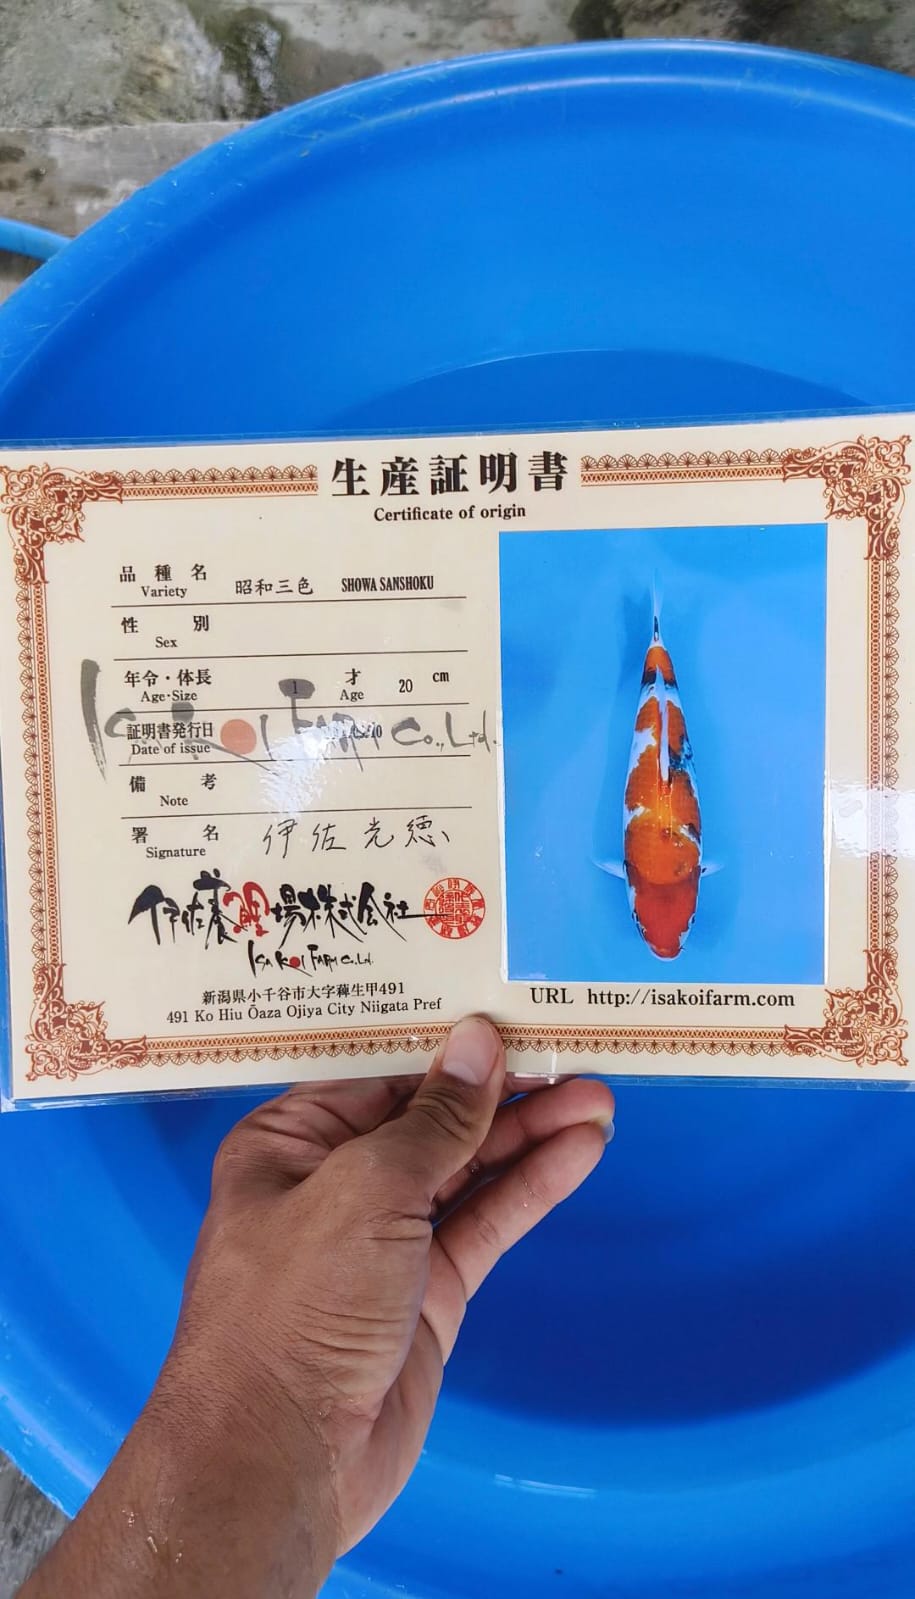 生産証明書
Certificate of origin
品種名 昭和三色 SHOWA SANSHOKU
Variety
性別
Sex
年令・体長 1 才 20 cm
Age・Size Age
証明書発行日
Date of issue
ISA KOI FARM Co.,Ltd.
備考
Note
署名 伊佐光徳
Signature
伊佐養鯉場株式会社
ISA KOI FARM Co.Ltd.
新潟県小千谷市大字薭生甲491
491 Ko Hiu Ōaza Ojiya City Niigata Pref
URL http://isakoifarm.com